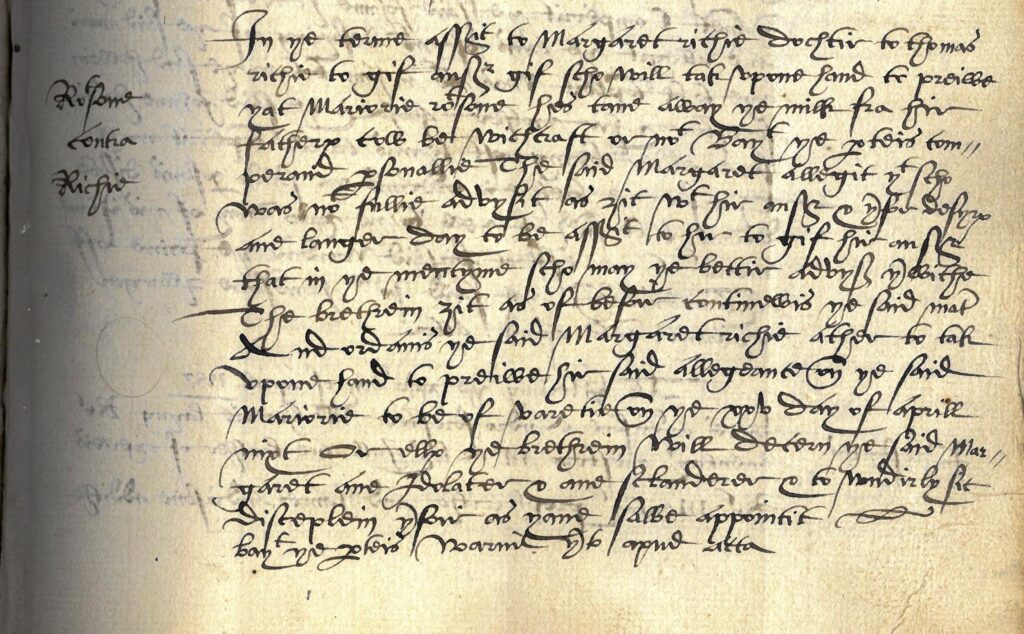 In ye terme assit to Margaret richie dochtir to thomas
Robsone
contra
Richie
richie to gif ansr gif scho will tak vpone hand to preiwe
yat Mariorie robsone hes tane away ye milk fra hir
fatherꝭ cow be witchcraft or not Bayt ye pteis com=
perand psonallie The said Margaret allegit yt scho
was not fullie advysit as zit wt hir ansr & yrfor desyrꝭ
ane langer day to be assit to hir to gif hir ansr
that in ye mentyme scho may ye bettir advyß yrwithe
The brethrein zit as of befoir continewis ye said matr
And ordanis ye said Margaret richie ather to tak
vpone hand to preiwe hir said allegeance vpon ye said
Mariorie to be of varetie vpon ye xxv day of aprill
nixt Or ellꝭ ye brethrein will decern ye said Mar=
garet ane Idolater & ane sclanderer & to wndirly sic
disceplein yrfoir as yame salbe appointit
bayt ye pteis warnit yrto apud acta